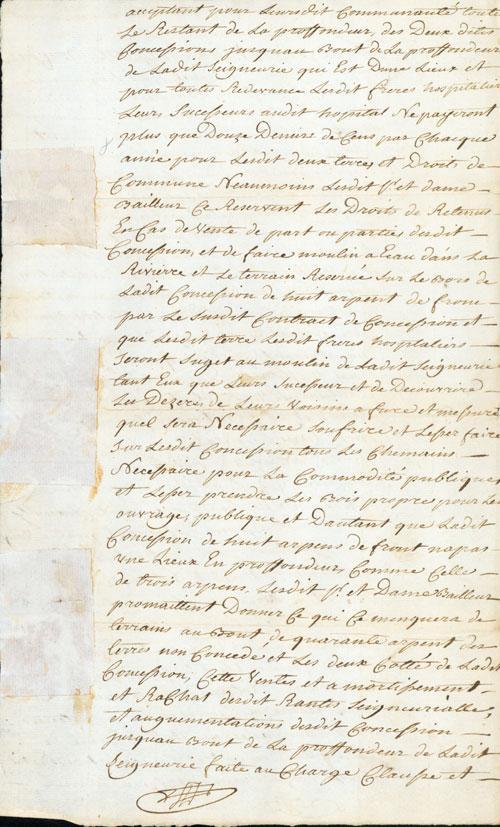 acceptant pour Leursdit Communauté toute
Le Restant de La proffondeur, des Deux dites
Concessions jusquau Bout de La proffondeur
de Ladit Seigneurie qui Est Dune Lieux et
pour toutes Redevance Lesdit freres hospitalier
Leurs Sucesseurs audit hopital Ne payeront
plus que Douze Denire de Cens par Chacque
année pour Lesdit deux terres et Droits de
Commune Neaumoins Lesdit Sr. et dame
Bailleur Ce Reservent Les Droits de Retenus
En Cas de Vente de part ou parties desdit
Concession, et de faire moulin a Eau dans La
Rivierre et Le terrain Reservé Sur Le Bors de
Ladit Concession de huit arpent de fronc
par Le Susdit Contract de Concession et
que Lesdit terre Lesdit freres hospitaliers
Seront Suget au moulin de Ladit Seigneurie
tant Eux que Leurs Sucesseur et de Decouvrire
Les Dezerts de Leurs Voisins a fure et mesure
quel Sera Necessaire Soufrire et Lesser faire
Sur Lesdit Concession tous Les Chemains
Necessaire pour La Commodité publiques
et Lesser prendre Les Bois propre pour Les
ouvrage, publique et Dautant que Ladit
Concession de huit arpens de front na pas
une Lieux En proffondeur Comme Celle
de trois arpens, Lesdit Sr. et Dame Bailleur
promaittent Donner Ce qui Ce menquera de
terrains au Bout, de quarante arpent des
terres non Concedé et Les deux Cottés de Ladit
Concession, Cette Ventes et amortissement
et RaChat desdit Rantes Seigneurialle,
et augmentations desdit Concession
jusquau Bout de La proffondeur de Ladit
Seigneurie faite au Charge Clauses et